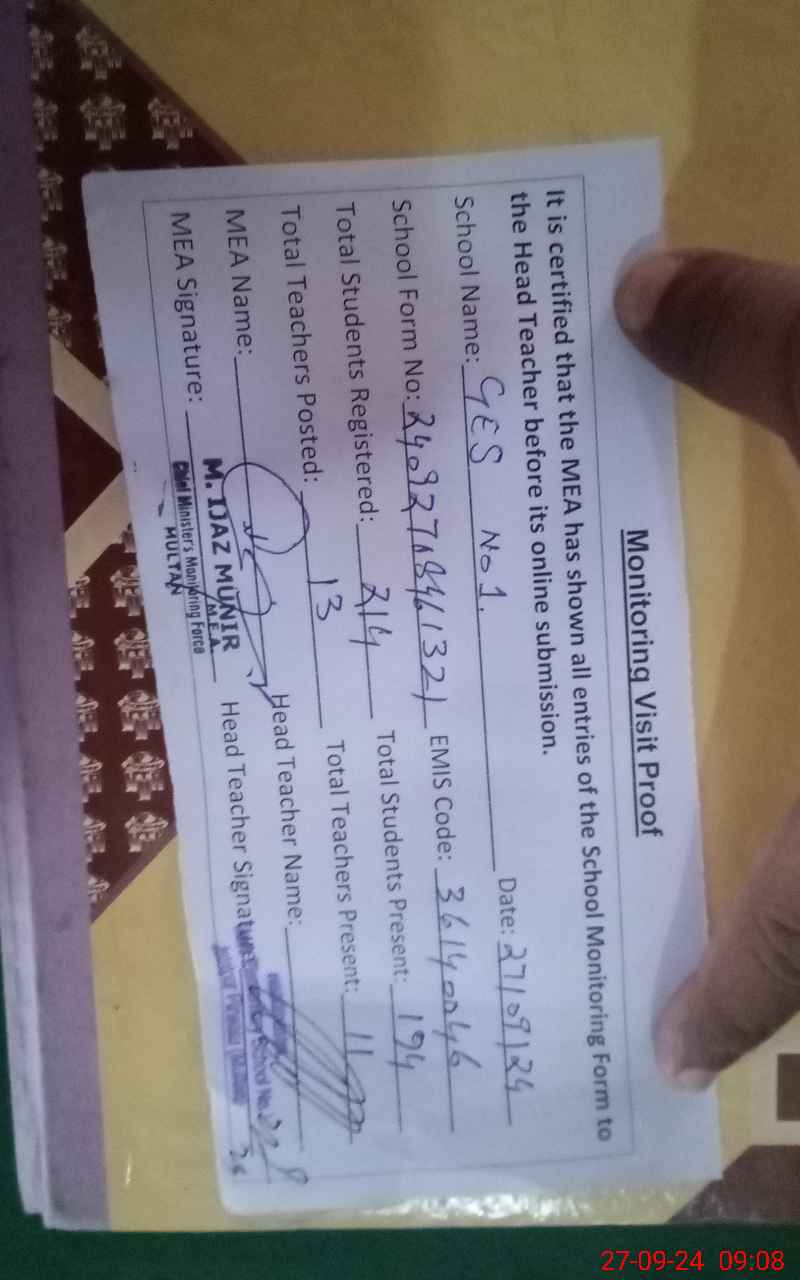 Monitoring Visit Proof
It is certified that the MEA has shown all entries of the School Monitoring Form to
the Head Teacher before its online submission.
School Name: GES No 1. Date: 27/09/24
School Form No: EMIS Code: 36140046
Total Students Registered: 214 Total Students Present: 194
Total Teachers Posted: 13 Total Teachers Present: 11
MEA Name: Head Teacher Name:
M. IJAZ MUNIR
M.E.A.
MEA Signature: Head Teacher Signature:
Chief Minister's Monitoring Force
MULTAN
School No.
27-09-24 09:08